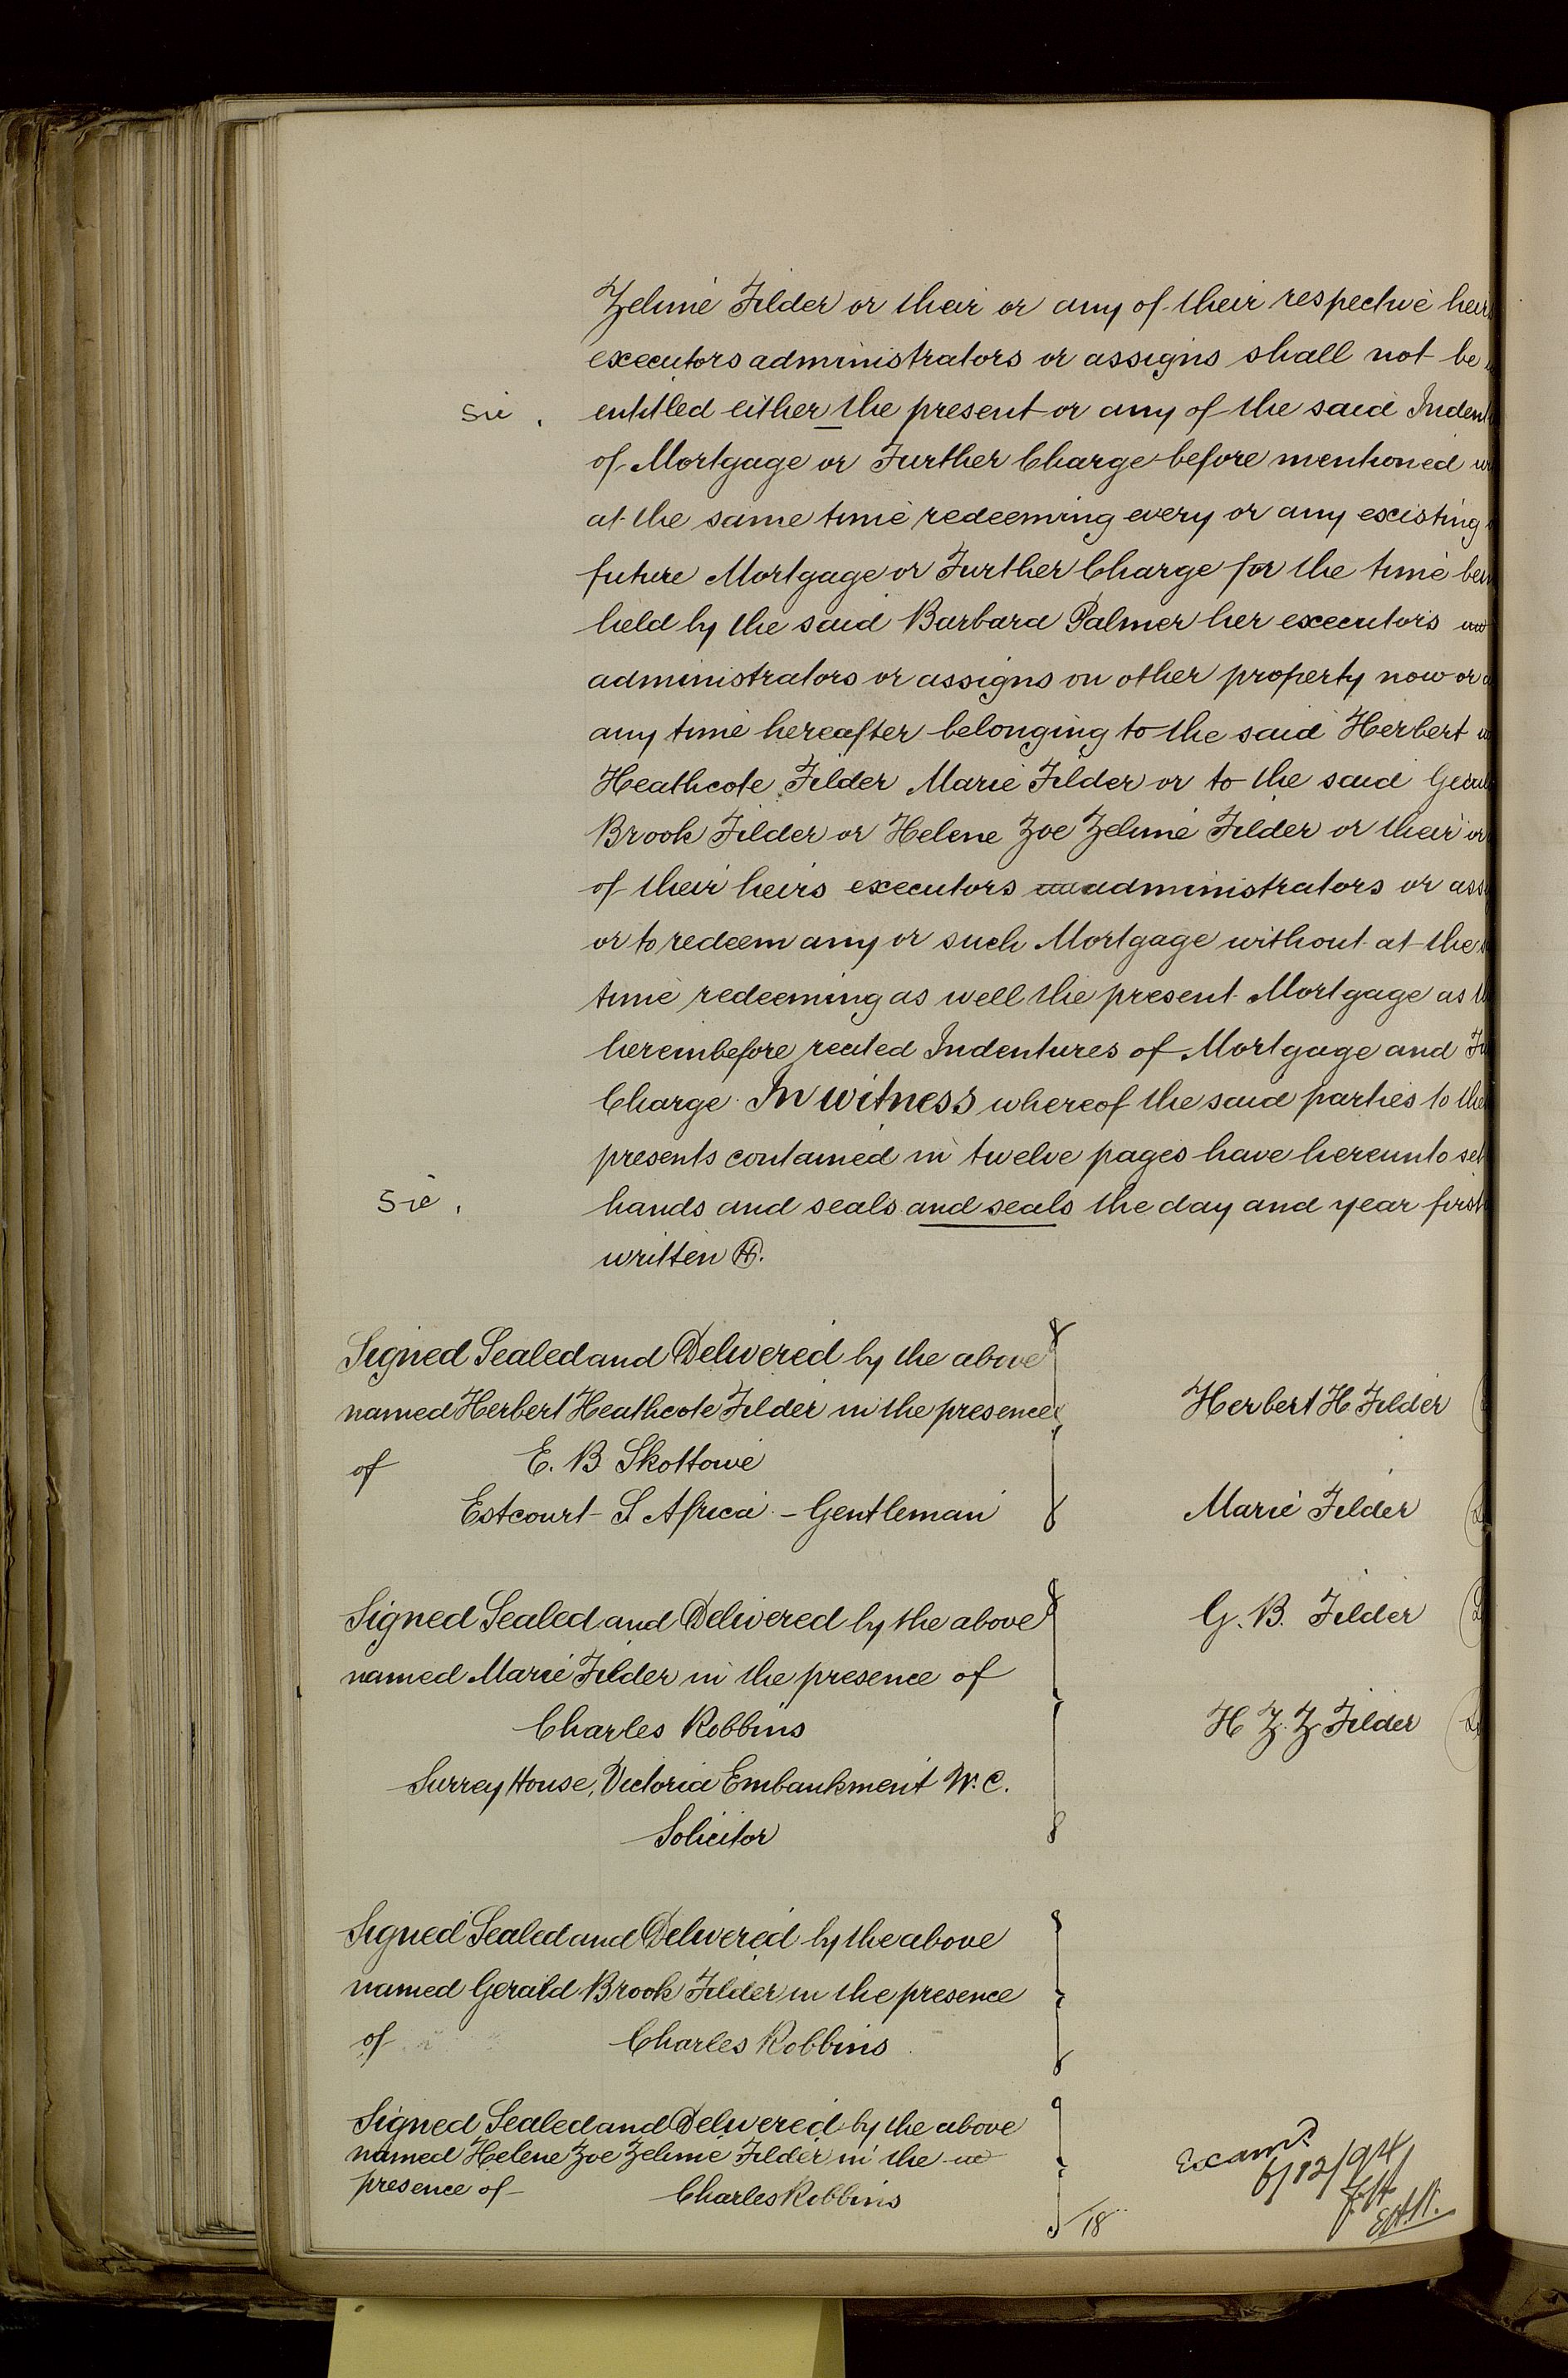 Zelmie Filder or their or any of their respective heirs
executors administrators or assigns shall not be
Sic. entitled either the present or any of the said Indent
of Mortgage or Further Charge before mentioned
at the same time redeeming every or any existing
future Mortgage or Further Charge for the time bein
held by the said Barbara Palmer her executors
administrators or assigns on other property now or
any time hereafter belonging to the said Herbert
Heathcote Filder Marie Filder or to the said Geral
Brook Filder or Helene Zoe Zelmie Filder or their or
of their heirs executors administrators or ass
or to redeem any or such Mortgage without at the
time redeeming as well the present Mortgage as
hereinbefore recited Indentures of Mortgage and Fu
Charge. In witness whereof the said parties to the
presents contained in twelve pages have hereunto set
Sic. hands and seals and seals the day and year first
written
Signed Sealed and Delivered by the above
named Herbert Heathcote Filder in the presence
of E. B Skottowe
Estcourt - S Africa - Gentleman
Herbert H Filder
Marie Filder
Signed Sealed and Delivered by the above
named Marie Filder in the presence of
Charles Robbins
Surrey House, Victoria Embankment W.C.
Solicitor
G. B. Filder
H Z. Z Filder
Signed Sealed and Delivered by the above
named Gerald Brook Filder in the presence
of Charles Robbins
Signed Sealed and Delivered by the above
named Helene Zoe Zelmie Filder in the
presence of Charles Robbins
18
Examd
6/12/94